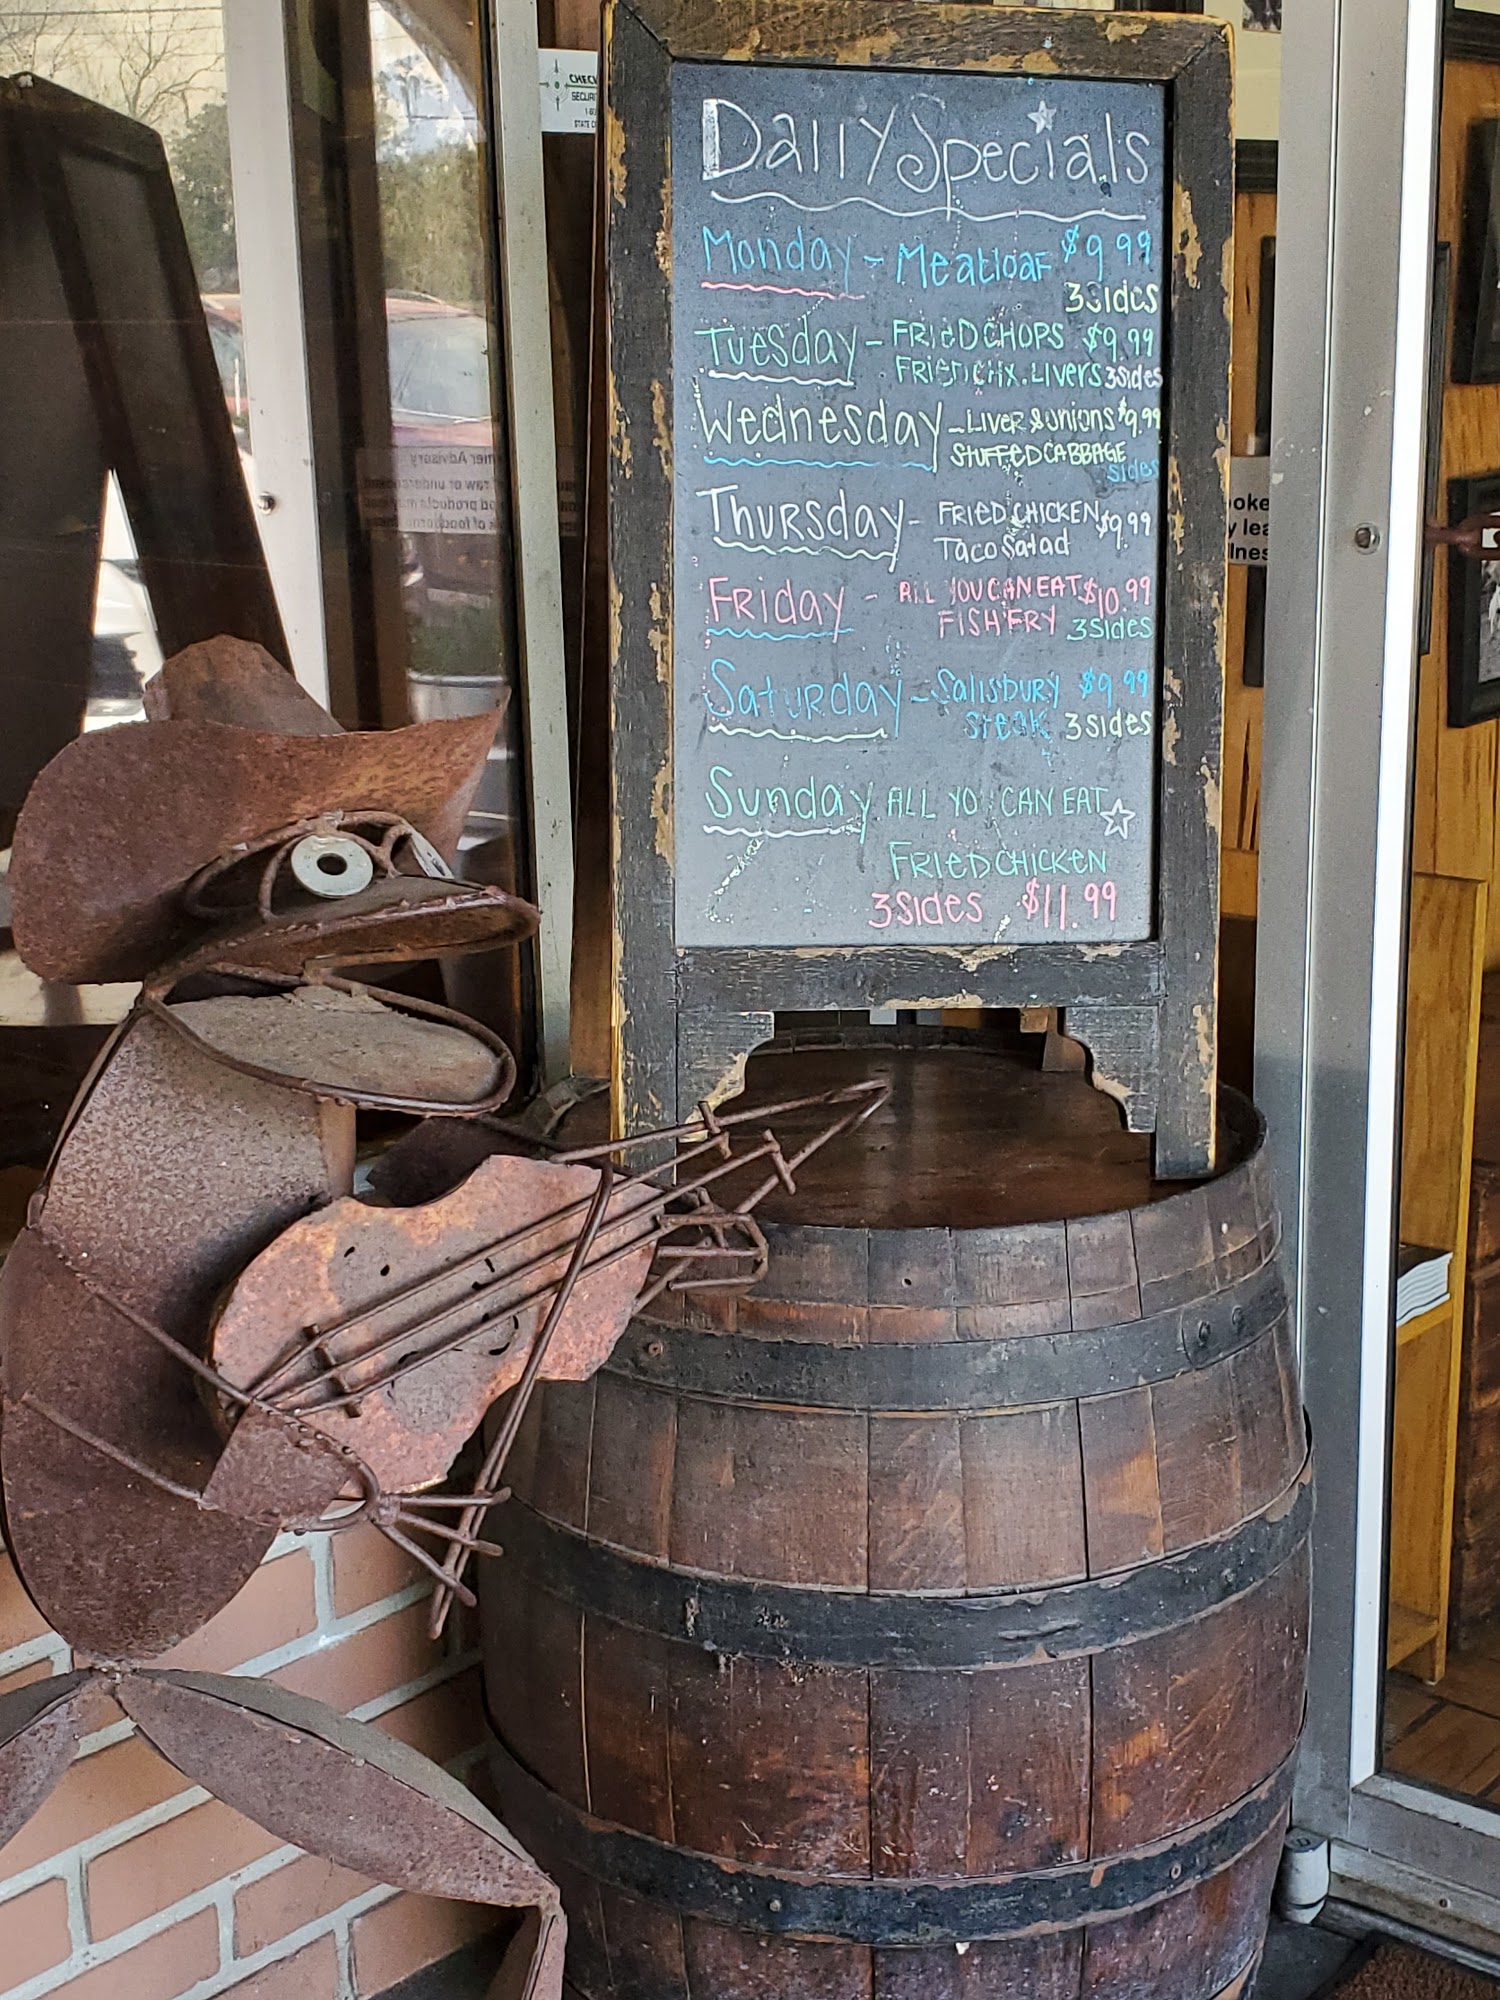 Daily Specials
Monday - Meatloaf $9.99
3 Sides
Tuesday - Fried Chops $9.99
Fried Chx. Livers 3 Sides
Wednesday - Liver & Unions $9.99
Stuffed Cabbage
sides
Thursday - Fried Chicken $9.99
Taco Salad
Friday - All You Can Eat $10.99
Fish Fry 3 Sides
Saturday - Salisbury $9.99
Steak 3 Sides
Sunday All Yo Can Eat
Fried Chicken
3 Sides $11.99